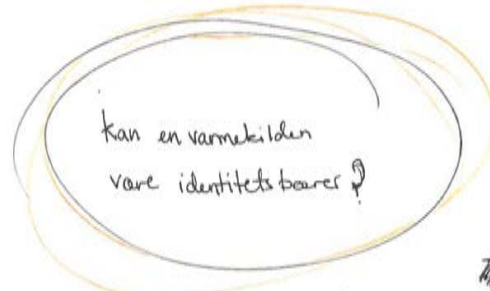 kan en varmekilden
være identitetsbærer?